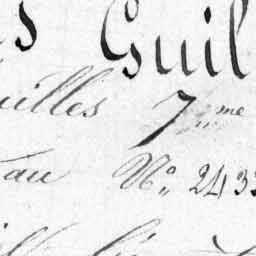 s Guil
uilles 7me
au No 243